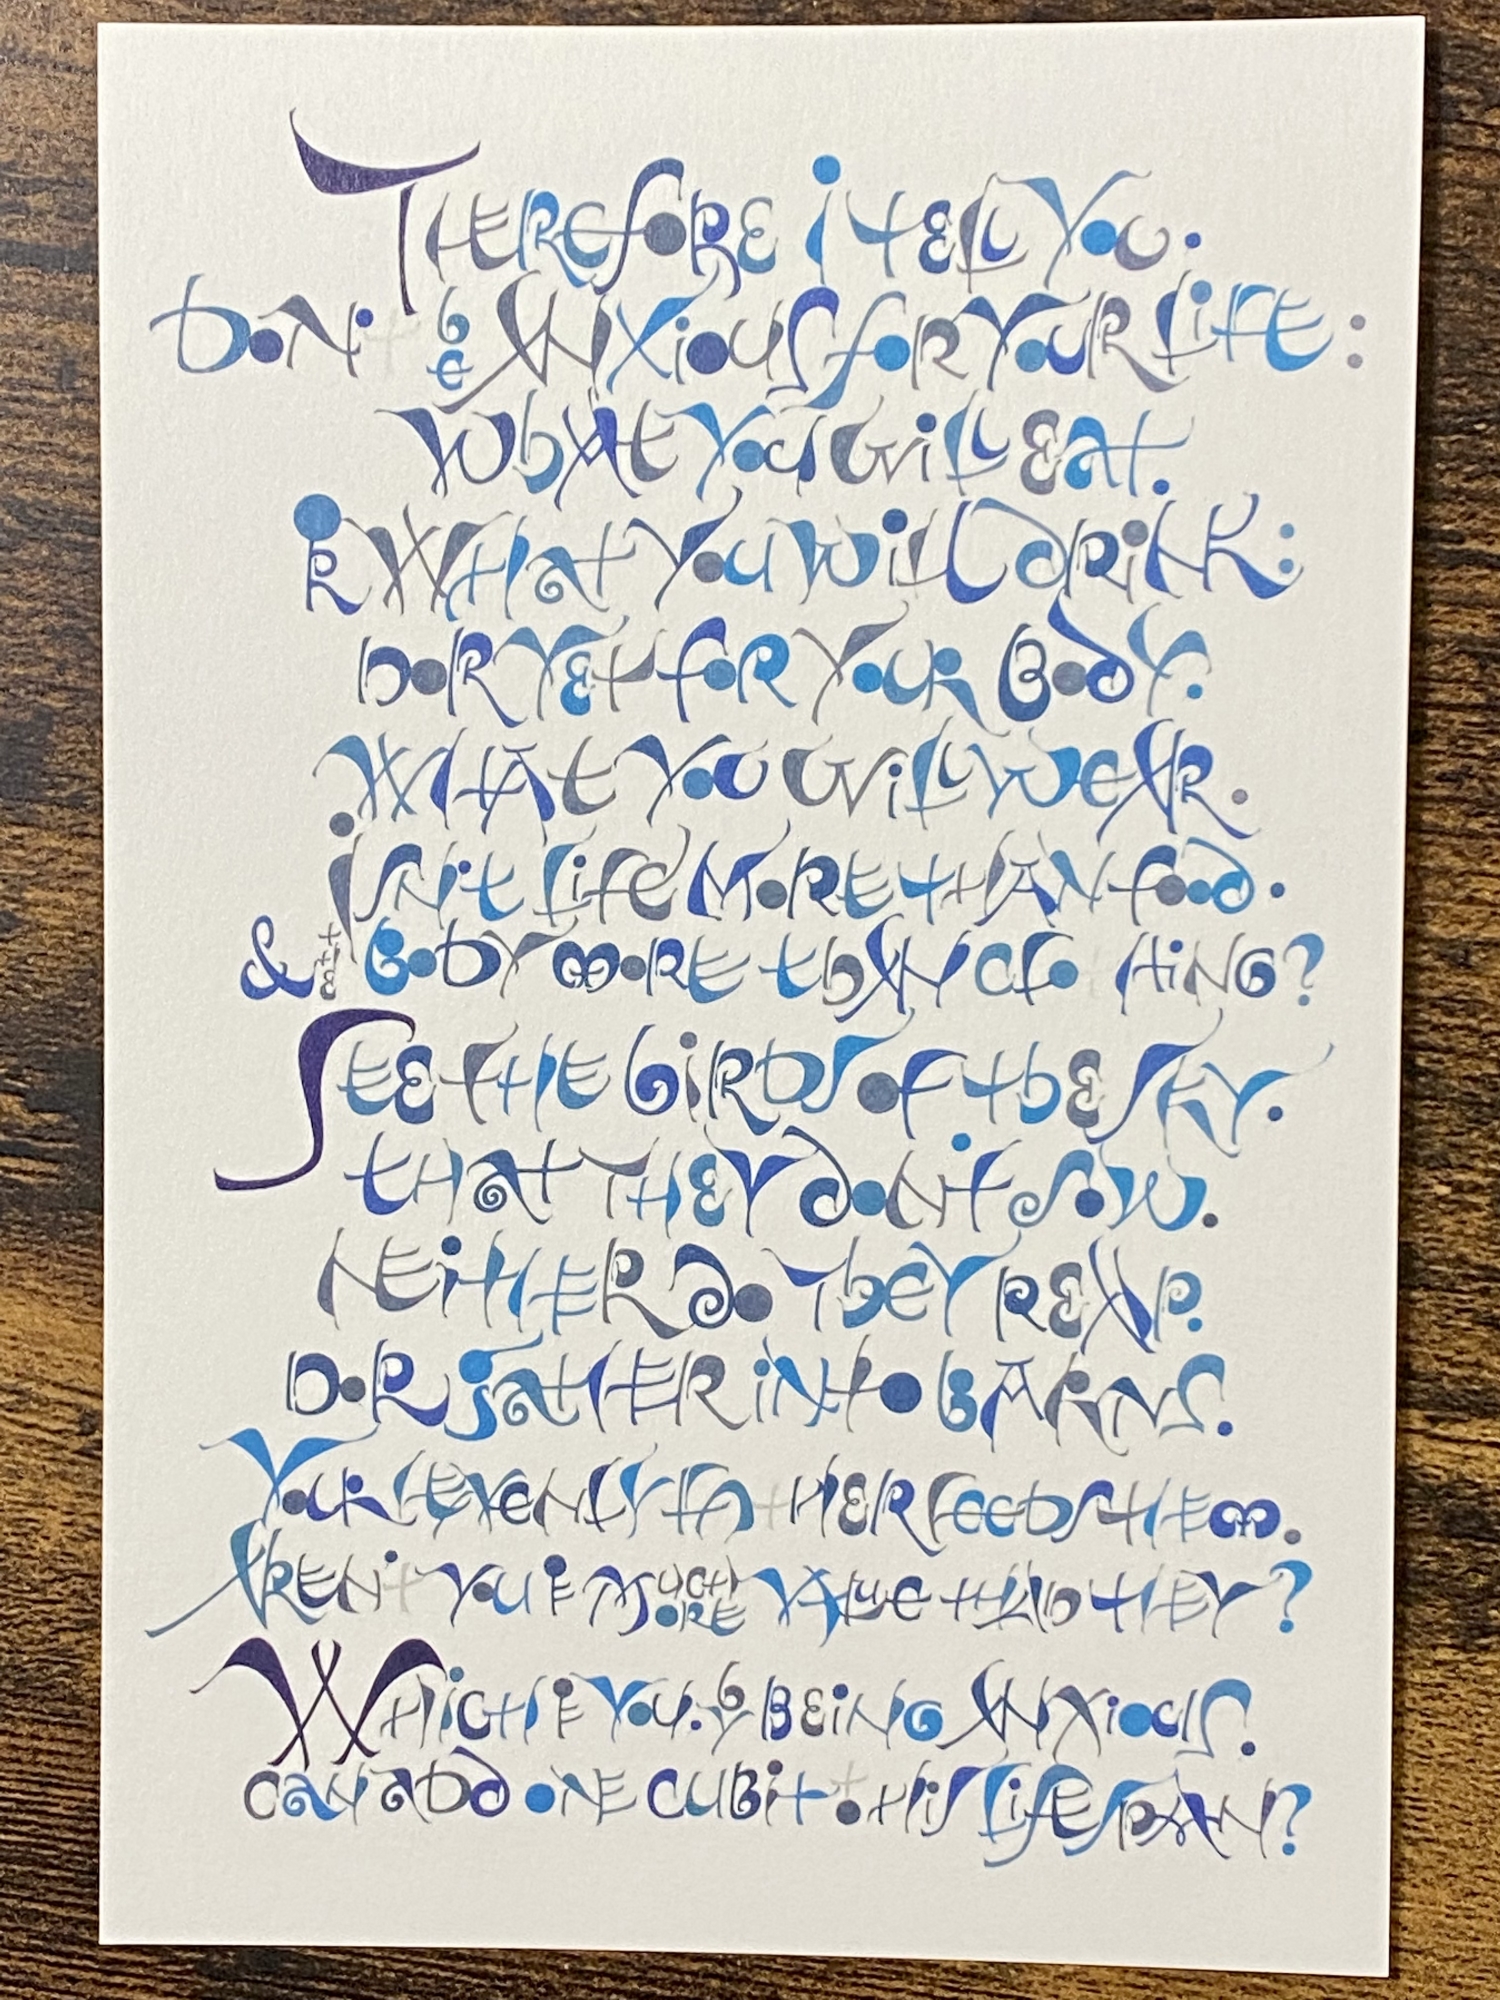 Therefore i tell you.
Don't be anxious for your life:
what you will eat.
or what you will drink:
nor yet for your body.
what you will wear.
isn't life more than food.
& the body more than clothing?
See the birds of the sky.
that they don't sow.
neither do they reap.
nor gather into barns.
Your Hevenly Father feeds them.
Aren't you of much more value than they?
Which of you. by being anxious.
can add one cubit to his lifespan?